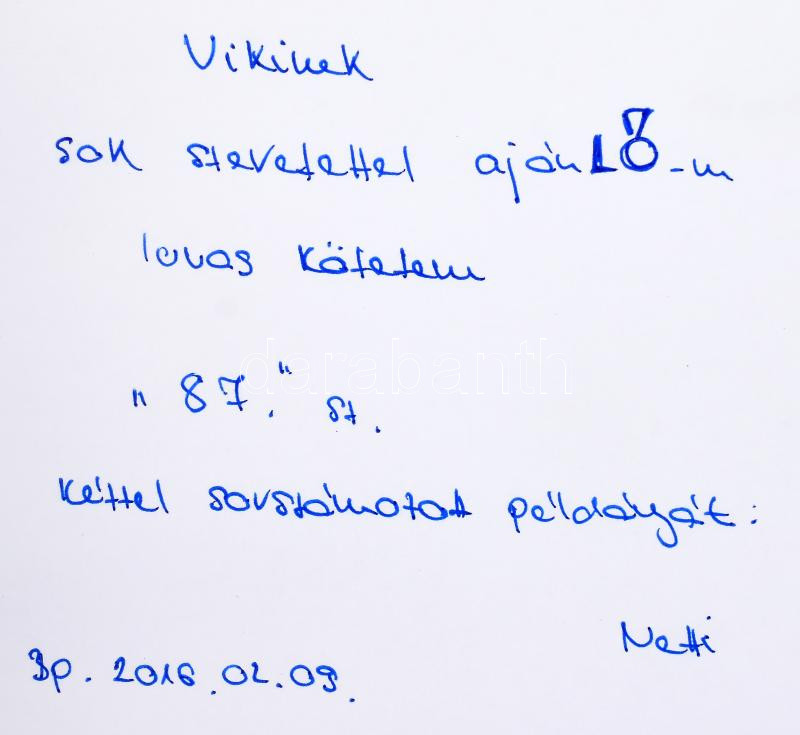 Vikinek
sok szeretettel ajánló-m
lovas kötetem
"87." sz.
kézzel sorszámozott példányát:
Netti
Bp. 2016.02.09.
darabanth